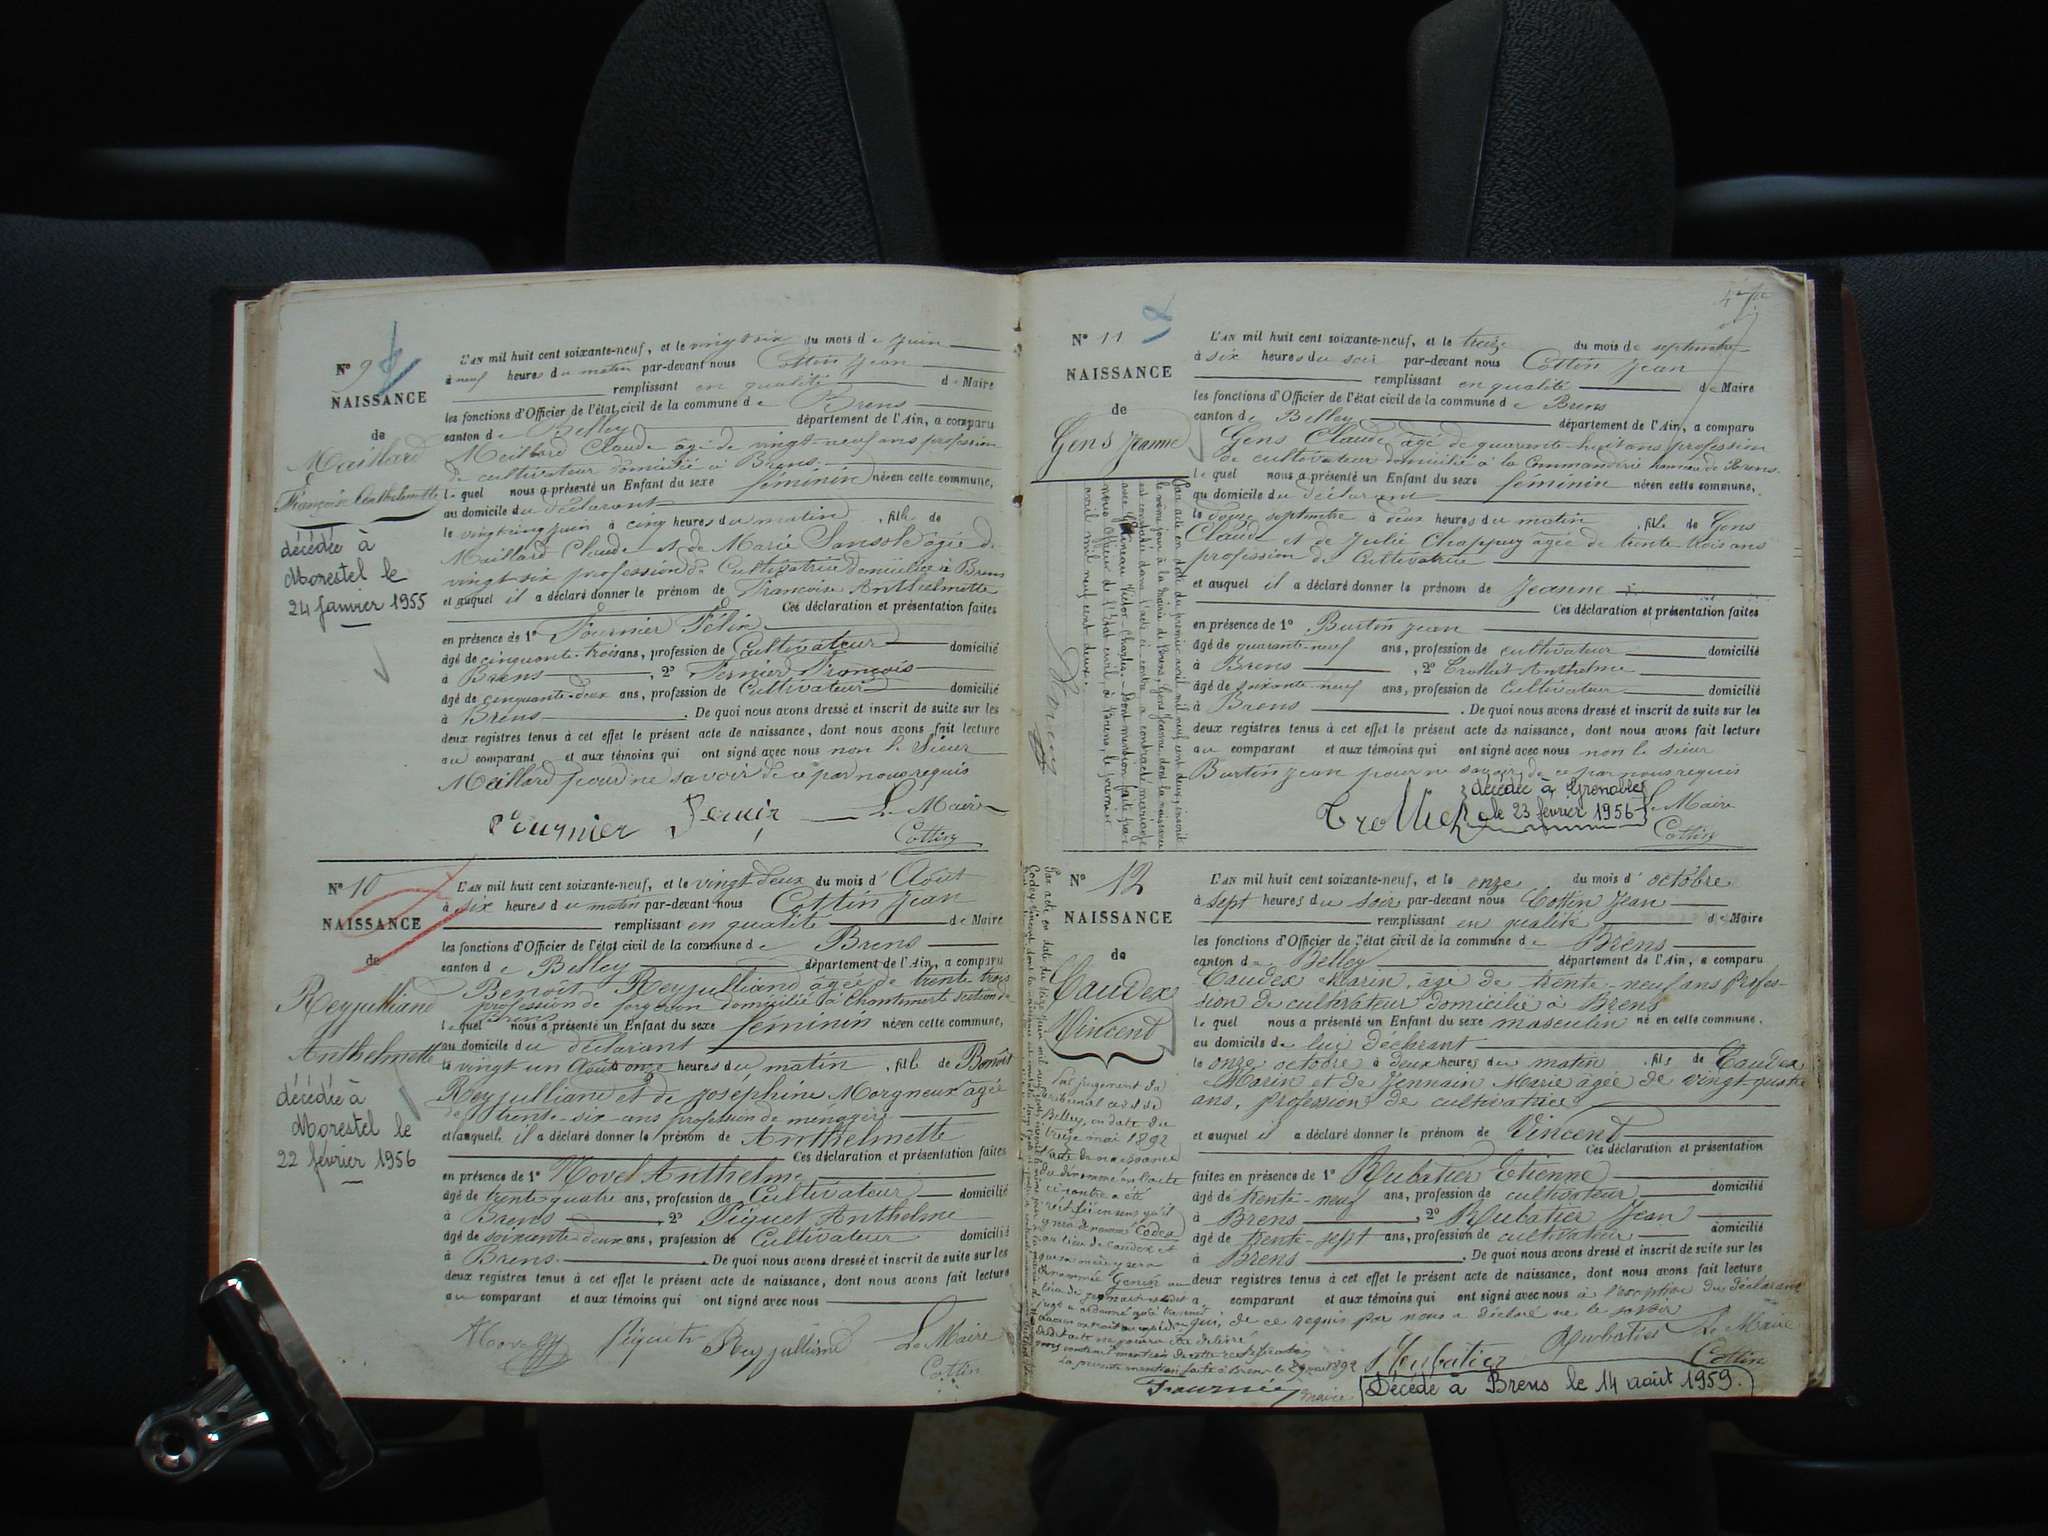 N° 9
NAISSANCE
de
Maillard
Françoise Anthelmette
décédée à
Morestel le
24 Janvier 1955
L'AN mil huit cent soixante-neuf, et le vingt six du mois de Juin
à neuf heures du matin par-devant nous Cottin Jean
remplissant en qualité de Maire
les fonctions d'Officier de l'état civil de la commune de Brens
canton de Belley département de l'Ain, a comparu
Meillard Claude âgé de vingt-neuf ans profession
de cultivateur domicilié à Brens
lequel nous a présenté un Enfant du sexe féminin née en cette commune,
au domicile du déclarant
le vingt cinq juin à cinq heures du matin, fille de
Maillard Claude et de Marie Sansole âgée de
vingt-six profession de Cultivatrice domiciliée à Brens
et auquel il a déclaré donner le prénom de Francoise Anthelmette
Ces déclaration et présentation faites
en présence de 1° Fournier Félix
âgé de cinquante-trois ans, profession de Cultivateur domicilié
à Brens, 2° Pernier François
âgé de cinquante-deux ans, profession de Cultivateur domicilié
à Brens. De quoi nous avons dressé et inscrit de suite sur les
deux registres tenus à cet effet le présent acte de naissance, dont nous avons fait lecture
au comparant et aux témoins qui ont signé avec nous non le Sieur
Meillard pour ne savoir de ce par nous requis
Fournier Le Maire
Cottin
N° 10
NAISSANCE
de
Reyjulliand
Anthelmette
décédée à
Morestel le
22 février 1956
L'AN mil huit cent soixante-neuf, et le vingt deux du mois d'Août
à six heures du matin par-devant nous Cottin Jean
remplissant en qualité de Maire
les fonctions d'Officier de l'état civil de la commune de Brens
canton de Belley département de l'Ain, a comparu
Benoit Reyjulliand âgée de trente trois
profession de forgeron domicilié à Chantemert section de
Brens
lequel nous a présenté un Enfant du sexe féminin née en cette commune,
au domicile du déclarant
le vingt un Août à onze heures du matin, fille de Benoit
Reyjulliand et de Joséphine Morgneux âgée
de trente-six ans profession de ménagère
et auquel il a déclaré donner le prénom de Anthelmette
Ces déclaration et présentation faites
en présence de 1° Hovel Anthelme
âgé de trente quatre ans, profession de Cultivateur domicilié
à Brens, 2° Piquet Anthelme
âgé de soixante deux ans, profession de Cultivateur domicilié
à Brens. De quoi nous avons dressé et inscrit de suite sur les
deux registres tenus à cet effet le présent acte de naissance, dont nous avons fait lecture
au comparant et aux témoins qui ont signé avec nous
Piquet Reyjulliand Le Maire
Cottin
N° 11
NAISSANCE
de
Gens Jeanne
Par acte en date du premier avril mil neuf cent deux, inscrit
le même jour à la mairie de Brens, Gens Jeanne dont la naissance
est constatée dans l'acte ci contre a contracté mariage
avec Gatineau Victor Charles. Dont mention fait par
nous Officier de l'état civil, à Brens, le premier
avril mil neuf cent deux.
L'AN mil huit cent soixante-neuf, et le treize du mois de septembre
à six heures du soir par-devant nous Cottin Jean
remplissant en qualité de Maire
les fonctions d'Officier de l'état civil de la commune de Brens
canton de Belley département de l'Ain, a comparu
Gens Claude âgé de quarante-huit ans profession
de cultivateur domicilié à la Commanderie hameau de Brens.
lequel nous a présenté un Enfant du sexe féminin née en cette commune,
au domicile du déclarant
le douze septembre à deux heures du matin, fille de Gens
Claude et de Julie Chappuy âgée de trente-trois ans
profession de Cultivatrice
et auquel il a déclaré donner le prénom de Jeanne
Ces déclaration et présentation faites
en présence de 1° Burtin Jean
âgé de quarante-neuf ans, profession de cultivateur domicilié
à Brens, 2° Trolliet Anthelme
âgé de soixante-neuf ans, profession de Cultivateur domicilié
à Brens. De quoi nous avons dressé et inscrit de suite sur les
deux registres tenus à cet effet le présent acte de naissance, dont nous avons fait lecture
au comparant et aux témoins qui ont signé avec nous non le sieur
Burtin Jean pour ne savoir de ce par nous requis
décédée à Grenoble
le 23 février 1956
Trolliet Le Maire
Cottin
N° 12
NAISSANCE
de
Caudex
Vincent
Par jugement du
tribunal civil de
Belley, en date du
treize mai 1892
l'acte de naissance
du dénommé en l'acte
ci contre a été
rectifié en sens qu'il
y sera dénommé Codex
au lieu de Caudex et
que sa mère y sera
dénommée Genin au
lieu de
La présente mention faite à Brens le 29 mai 1892
Fournier maire
L'AN mil huit cent soixante-neuf, et le onze du mois d'octobre
à sept heures du soir par-devant nous Cottin Jean
remplissant en qualité de Maire
les fonctions d'Officier de l'état civil de la commune de Brens
canton de Belley département de l'Ain, a comparu
Caudex Marin, âgé de trente-neuf ans profes-
sion de cultivateur domicilié à Brens
lequel nous a présenté un Enfant du sexe masculin né en cette commune.
au domicile de lui déclarant
le onze octobre à deux heures du matin, fils de Caudex
Marin et de Jennain Marie âgée de vingt-quatre
ans, profession de cultivatrice
et auquel il a déclaré donner le prénom de Vincent
Ces déclaration et présentation
faites en présence de 1° Rubatier Etienne
âgé de trente-neuf ans, profession de cultivateur domicilié
à Brens, 2° Rubatier Jean
âgé de trente-sept ans, profession de cultivateur domicilié
à Brens. De quoi nous avons dressé et inscrit de suite sur les
deux registres tenus à cet effet le présent acte de naissance, dont nous avons fait lecture
au comparant et aux témoins qui ont signé avec nous à l'exception du déclarant
qui, de ce requis par nous a déclaré ne le savoir
Rubatier Rubatier Le Maire
Cottin
Décédé à Brens le 14 août 1959.